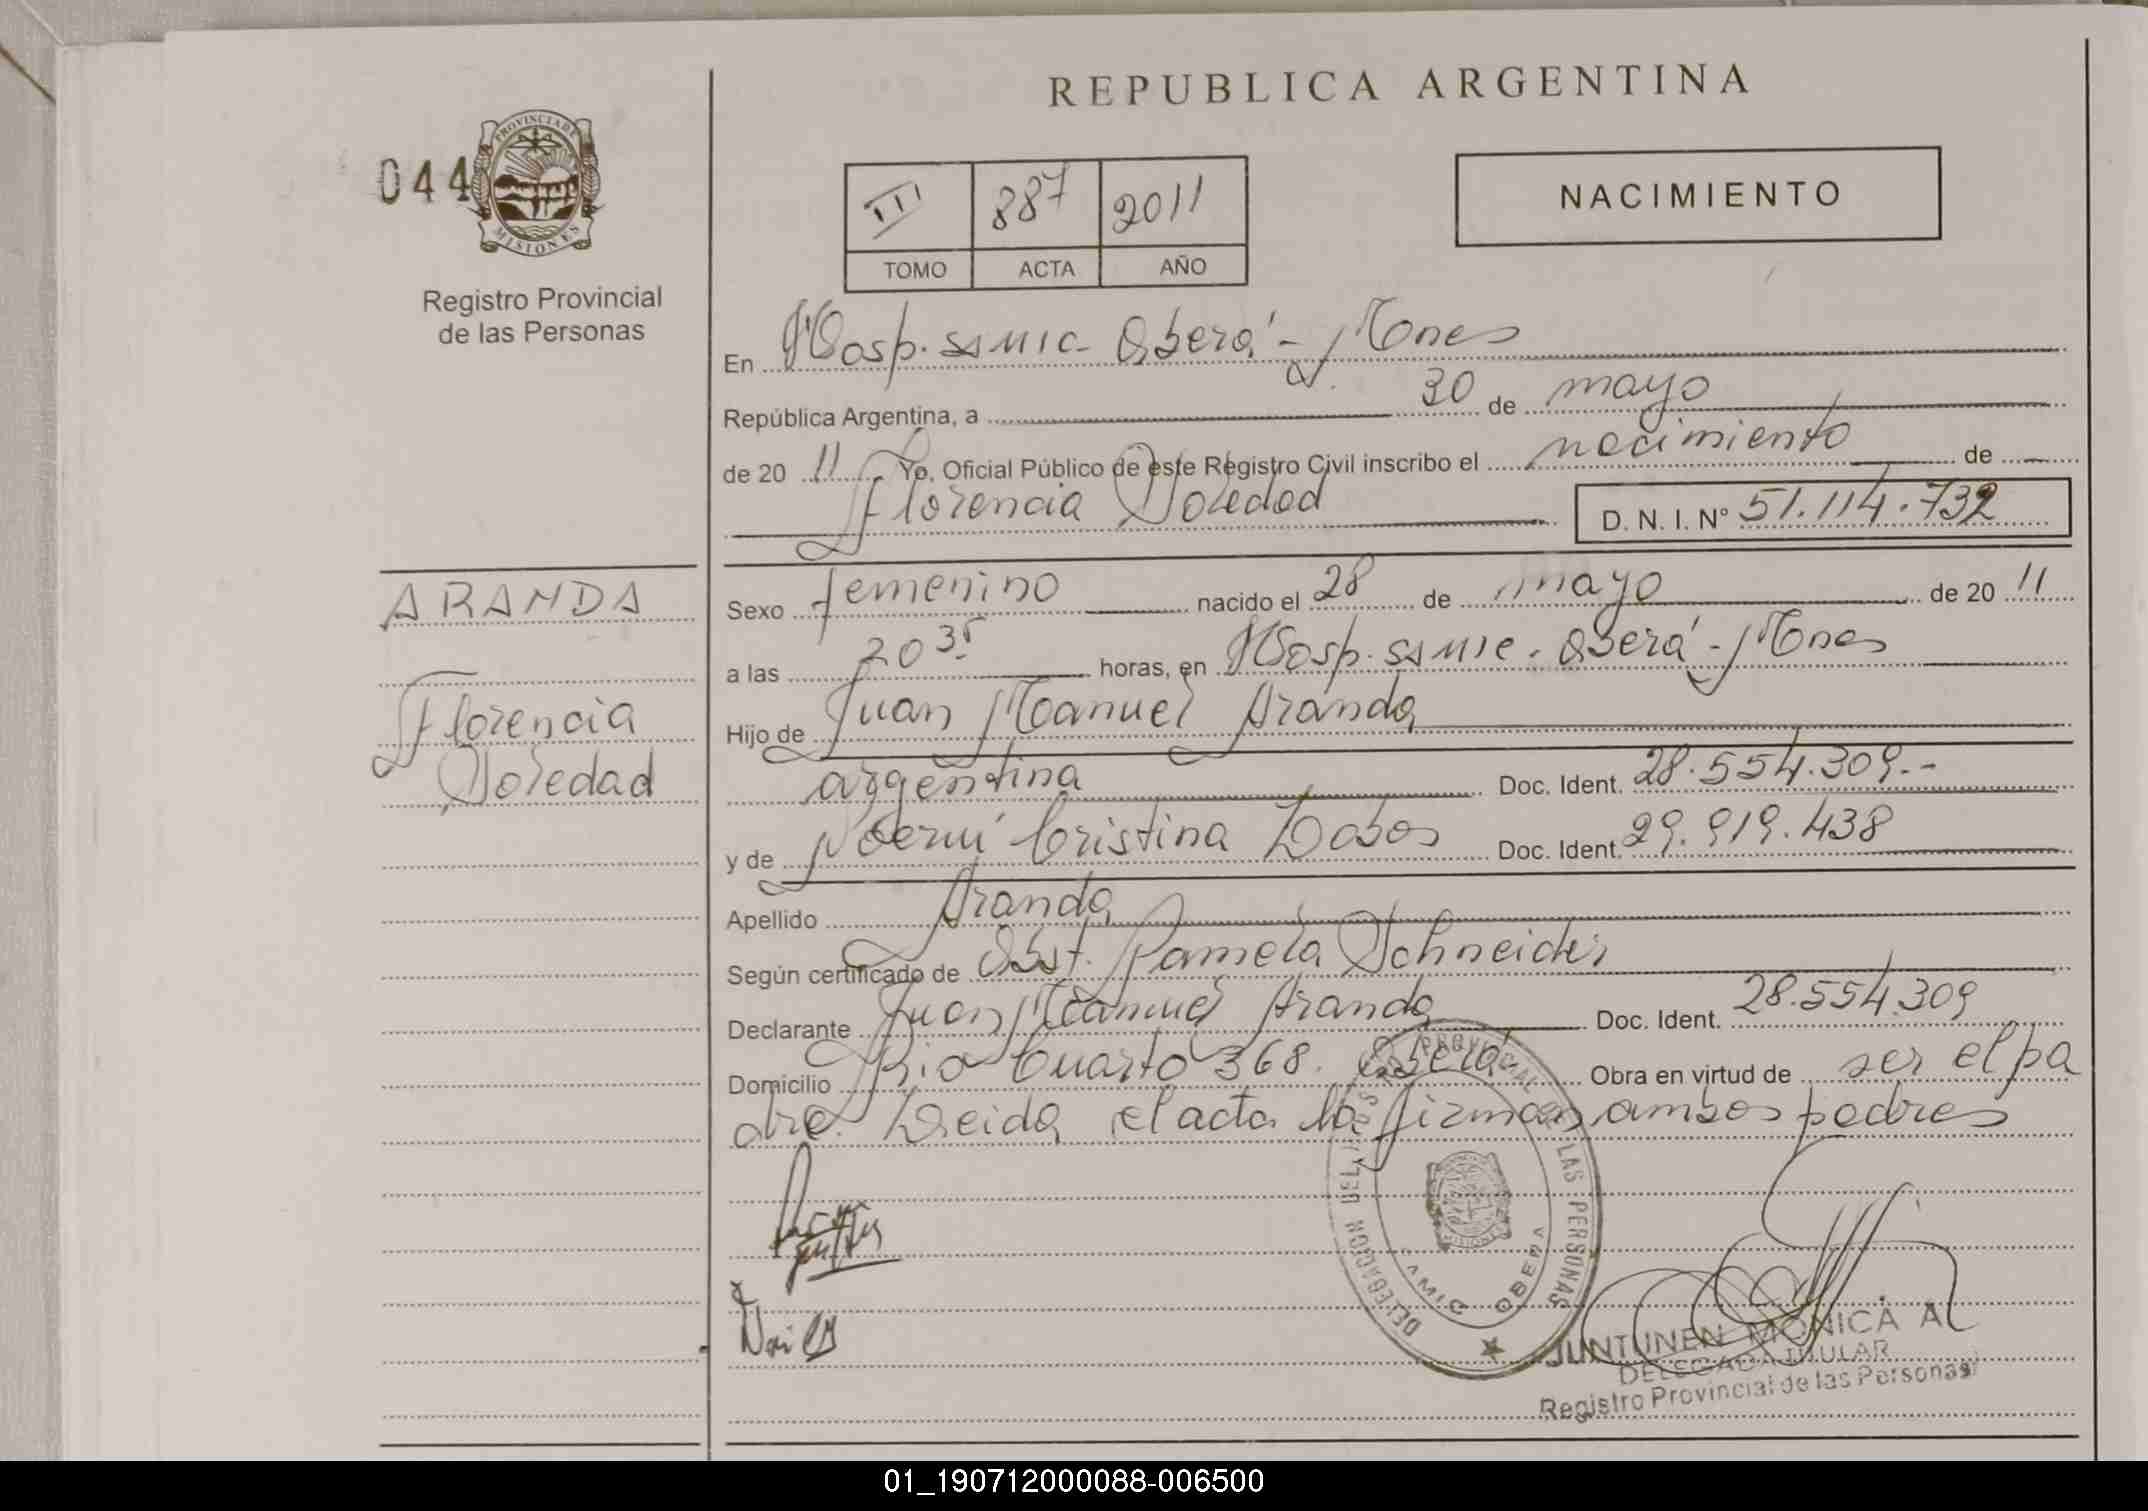 REPUBLICA ARGENTINA
044
PROVINCIA DE
MISIONES
Registro Provincial
de las Personas
III 887 2011
TOMO ACTA AÑO
NACIMIENTO
En Hosp. SAMIC - Oberá - Mones
República Argentina, a 30 de mayo
de 20 11 Yo, Oficial Público de este Registro Civil inscribo el nacimiento de
Florencia Soledad D. N. I. N° 51.114.732
ARANDA
Florencia
Soledad
Sexo femenino nacido el 28 de mayo de 20 11
a las 20 35 horas, en Hosp. SAMIC. Oberá - Mones
Hijo de Juan Manuel Aranda
argentina Doc. Ident. 28.554.309.--
y de Noemí Cristina Doc. Ident. 29.919.438
Apellido Aranda
Según certificado de Obst. Pamela Schneider
Declarante Juan Manuel Aranda Doc. Ident. 28.554.309
Domicilio Rio Cuarto 368. Oberá Obra en virtud de ser el pa
dre. Leida el acta la firman ambos padres
DELEGACION DEL REGISTRO PROVINCIAL DE LAS PERSONAS
SAMIC OBERA
JUNTUNEN MONICA A.
DELEGADA TITULAR
Registro Provincial de las Personas
01_190712000088-006500